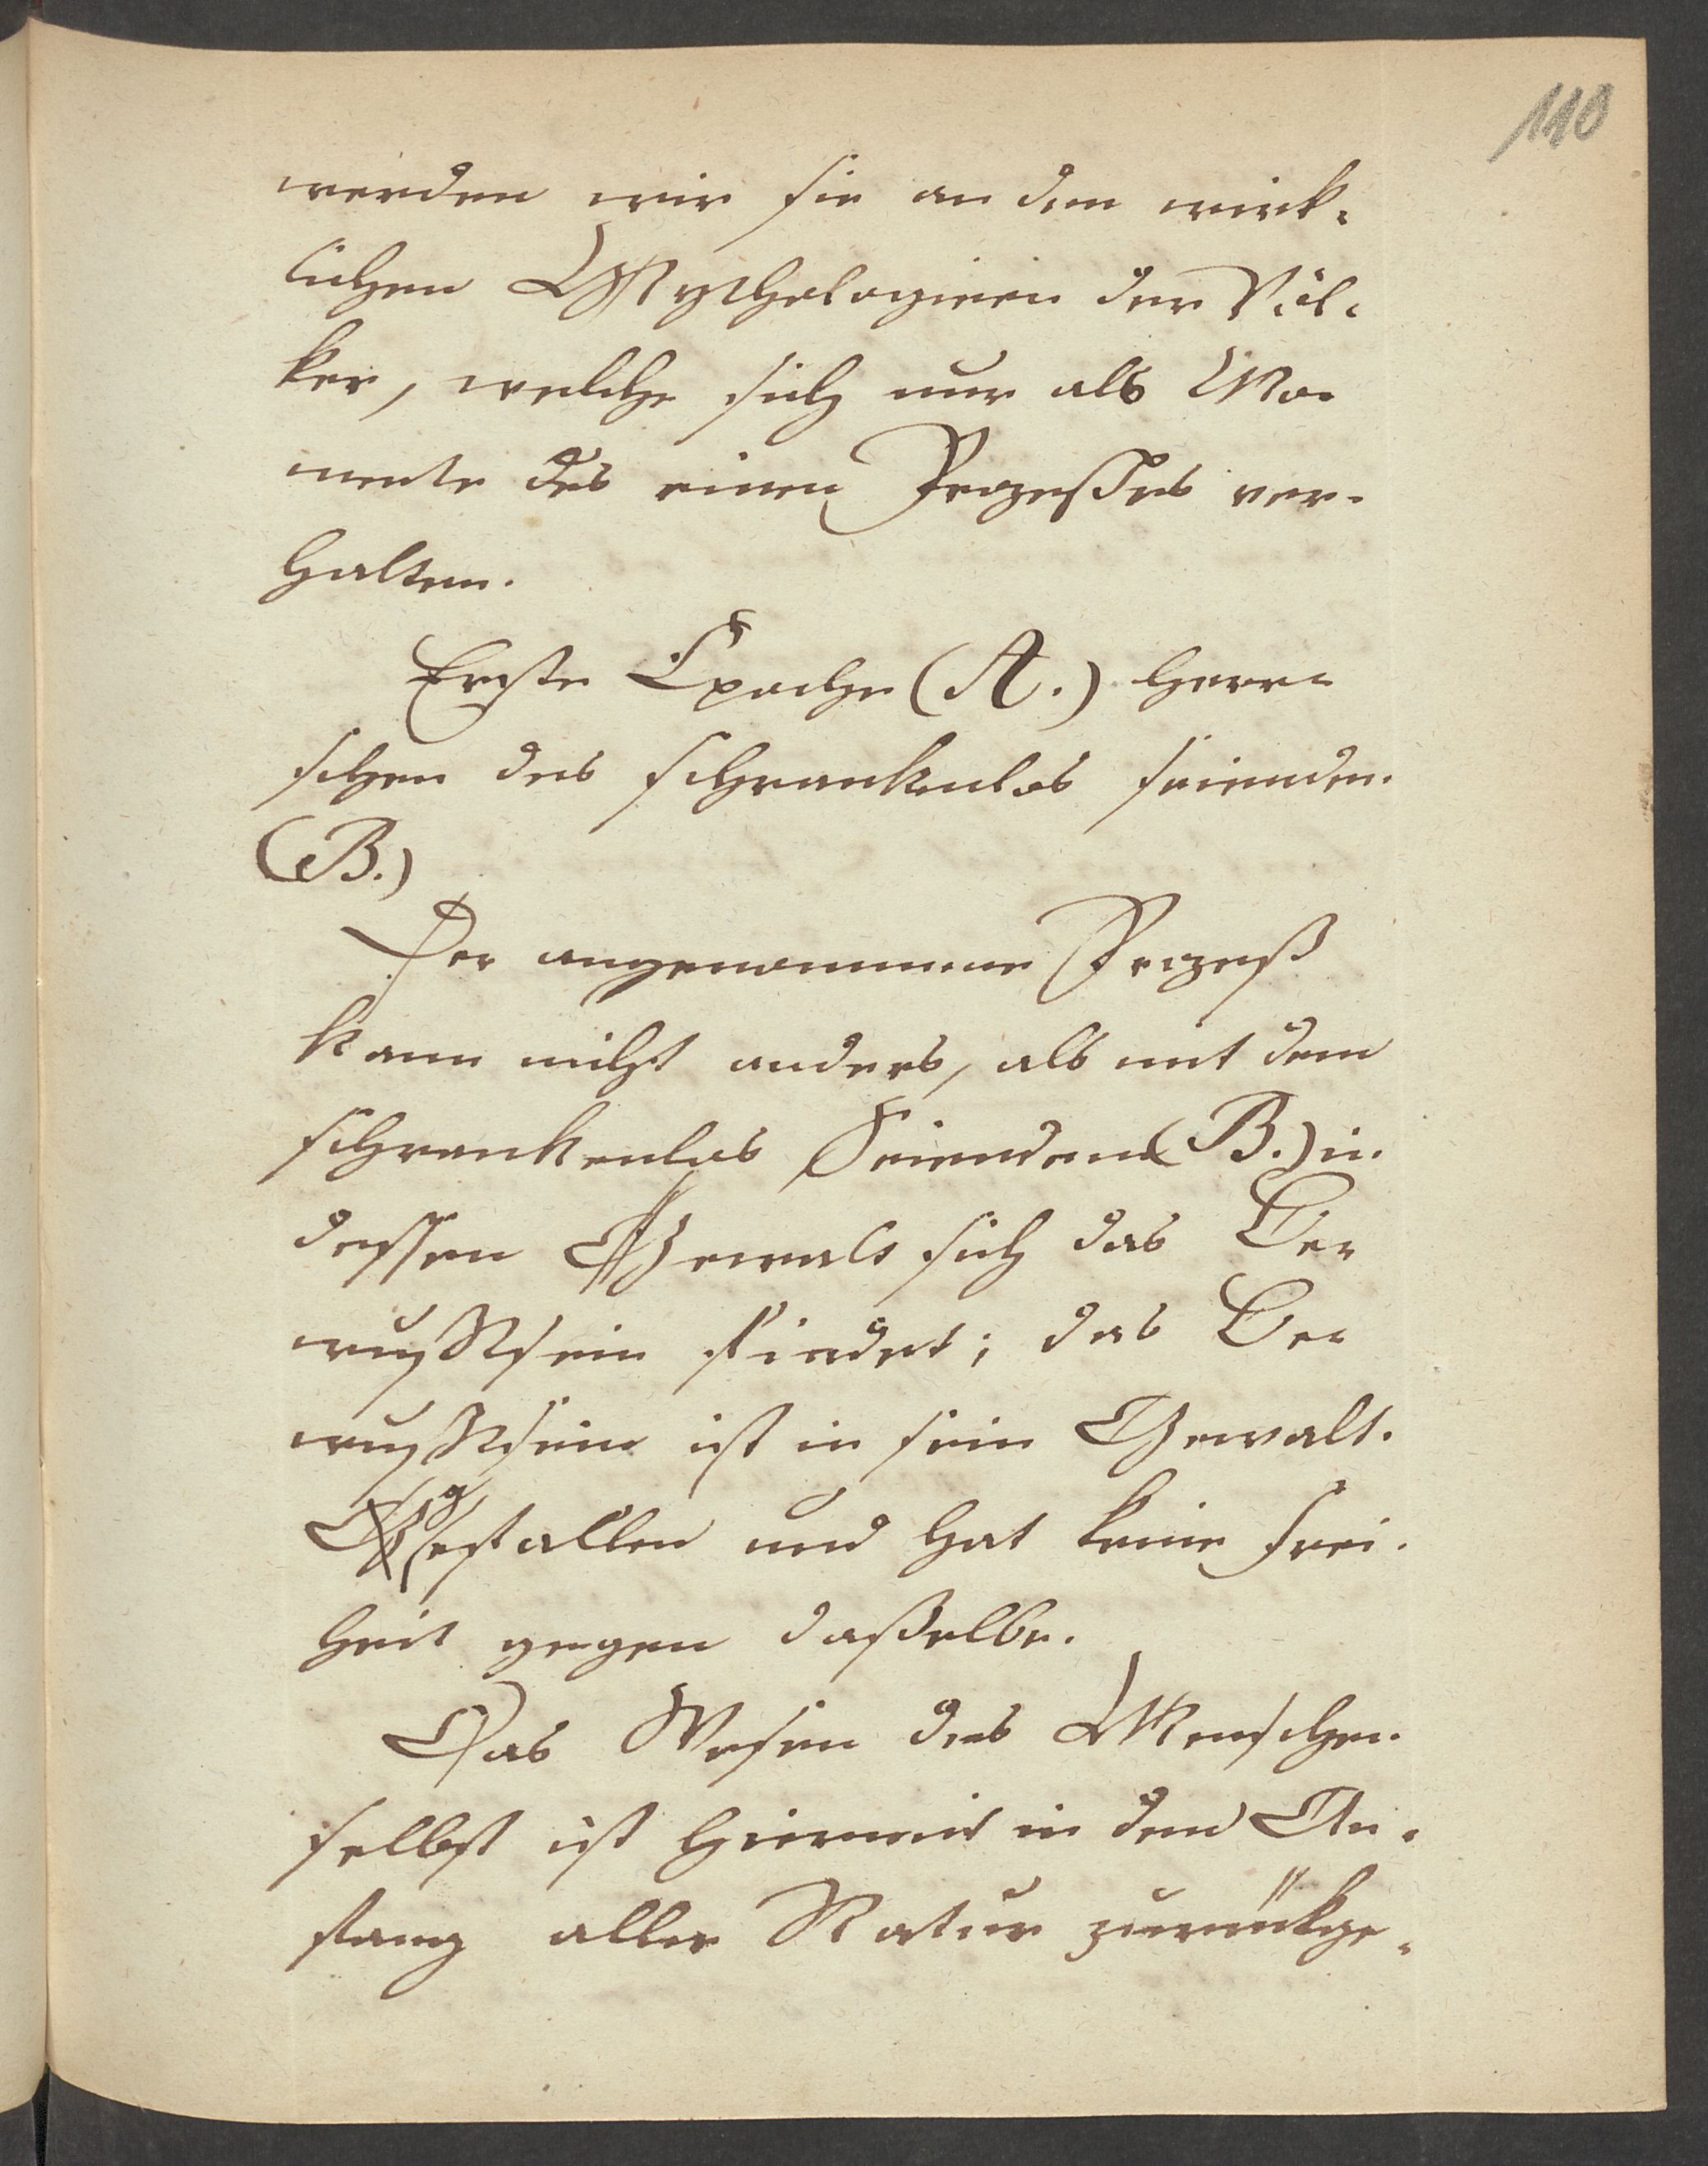 110
werden wir sie an den wirk-
lichen Mythologieen der Völ-
ker, welche sich nur als Mo-
mente des einen Prozesses ver-
halten.
Erste Epoche (A.) Herr-
schen des schrankenlos seienden.
(B.)
Der angenommene Prozeß
kann nicht anders, als mit dem
schrankenlos Seienden (B.) in
dessen Gewalt sich das Be-
wußtsein findet; das Be-
wußtsein ist in sein Gewalt.
gefallen und hat keine Frei-
heit gegen daßelbe.
Das Wesen des Menschen
selbst ist hiermit in den An-
fang aller Natur zurückge-